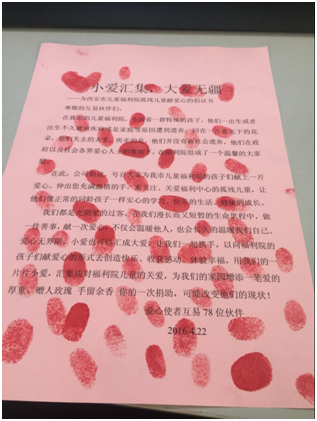 小爱汇集,大爱无疆
——为西安市儿童福利院孤残儿童献爱心的倡议书
尊敬的互易伙伴们:
在我市的儿童福利院,有着一群特殊的孩子,他们一出生或者
出生不久就被疾病或是家庭等原因遭到遗弃,
们失去的太多,
府以及社会各界爱心人士的帮助下,在福利院组成了一个温馨的大家
庭。
在此,公司倡议,号召大家为我市儿童福利院的孩子们献上一片
爱心,伸出您充满激情的手,来关注、关爱福利中心的孤残儿童,让
他们像正常的同龄孩子一样安心的学习、快乐的生活、健康的成长。
我们都是光阴里的过客,在我们漫长而又短暂的生命里程中,做
一件善事,献一次爱心,不仅会温暖他人,也会长久的温暖我们自己,
爱心无界限,小爱也可以汇成大爱,让我们一起携手,以向福利院的
孩子们献爱心的形式去创造快乐、收获感动、体验幸福,用我们的一
片片小爱,汇集成对福利院儿童的大爱,为我们的家园增添一笔爱的
厚重。赠人玫瑰 手留余香 你的一次捐助,可能改变他们的现状!
爱心使者互易 78 位伙伴
2016.4.22